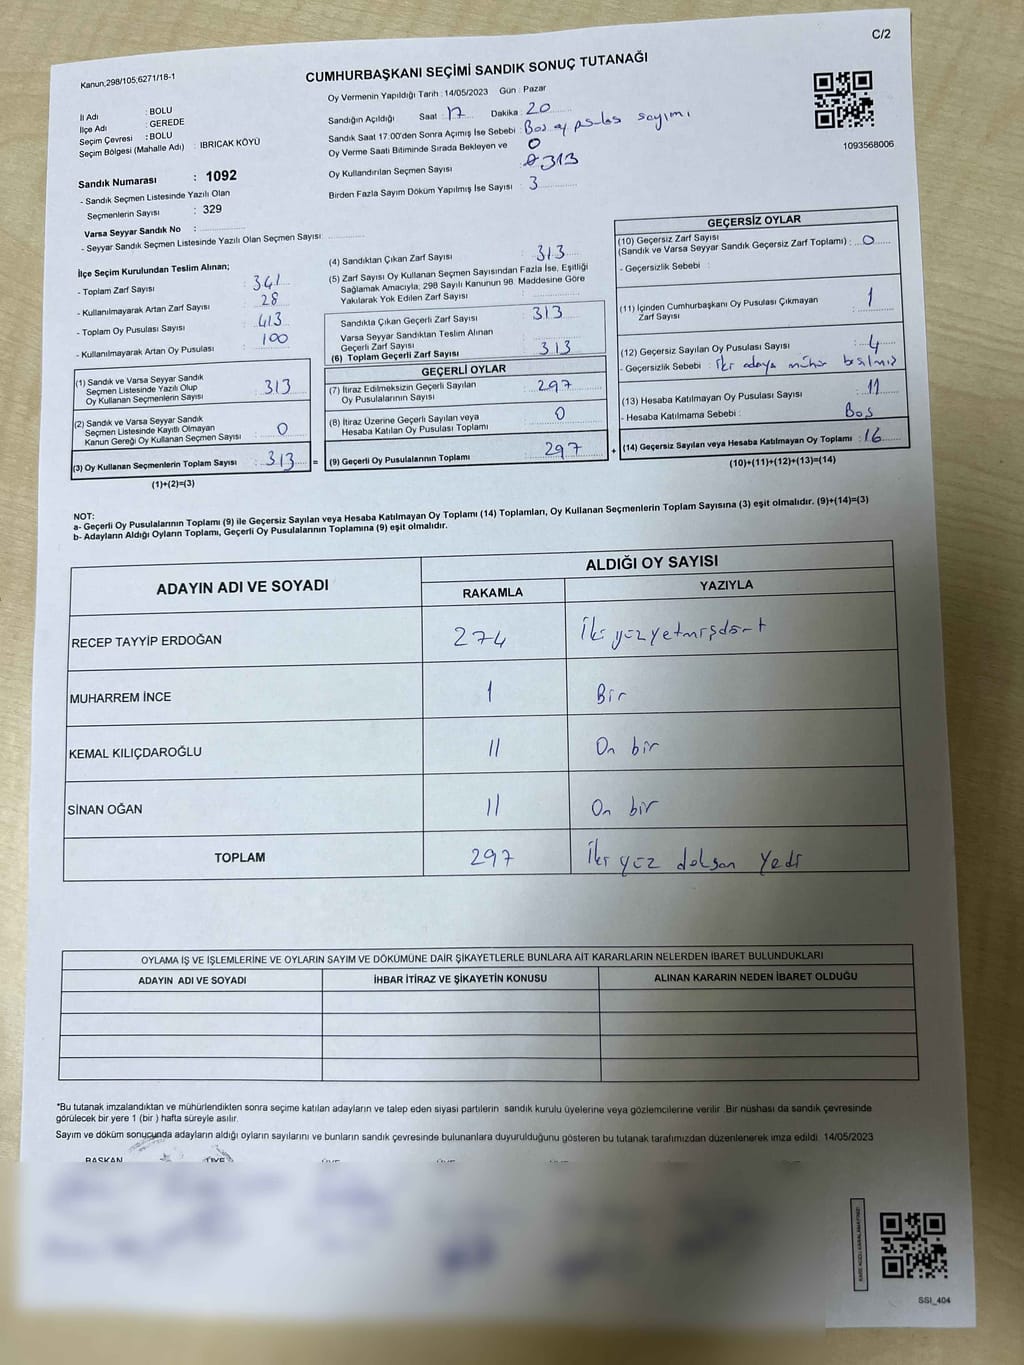 C/2
Kanun,298/105;6271/18-1
CUMHURBAŞKANI SEÇİMİ SANDIK SONUÇ TUTANAĞI
Oy Vermenin Yapıldığı Tarih : 14/05/2023 Gün : Pazar
İl Adı : BOLU
İlçe Adı : GEREDE
Seçim Çevresi : BOLU
Seçim Bölgesi (Mahalle Adı) : IBRICAK KÖYÜ
Sandık Numarası : 1092
- Sandık Seçmen Listesinde Yazılı Olan
Seçmenlerin Sayısı : 329
Varsa Seyyar Sandık No :
- Seyyar Sandık Seçmen Listesinde Yazılı Olan Seçmen Sayısı:
Sandığın Açıldığı Saat : 17 Dakika : 20
Sandık Saat 17:00'den Sonra Açımış İse Sebebi : Boş oy pusulas sayımı
Oy Verme Saati Bitiminde Sırada Bekleyen ve : 0
Oy Kullandırılan Seçmen Sayısı 313
Birden Fazla Sayım Döküm Yapılmış İse Sayısı : 3
1093568006
İlçe Seçim Kurulundan Teslim Alınan;
- Toplam Zarf Sayısı : 341
- Kullanılmayarak Artan Zarf Sayısı : 28
- Toplam Oy Pusulası Sayısı : 413
- Kullanılmayarak Artan Oy Pusulası : 100
(1) Sandık ve Varsa Seyyar Sandık
Seçmen Listesinde Yazılı Olup
Oy Kullanan Seçmenlerin Sayısı : 313
(2) Sandık ve Varsa Seyyar Sandık
Seçmen Listesinde Kayıtlı Olmayan
Kanun Gereği Oy Kullanan Seçmen Sayısı : 0
(3) Oy Kullanan Seçmenlerin Toplam Sayısı : 313 =
(1)+(2)=(3)
(4) Sandıktan Çıkan Zarf Sayısı : 313
(5) Zarf Sayısı Oy Kullanan Seçmen Sayısından Fazla İse, Eşitliği
Sağlamak Amacıyla, 298 Sayılı Kanunun 98. Maddesine Göre
Yakılarak Yok Edilen Zarf Sayısı :
Sandıkta Çıkan Geçerli Zarf Sayısı : 313
Varsa Seyyar Sandıktan Teslim Alınan
Geçerli Zarf Sayısı :
(6) Toplam Geçerli Zarf Sayısı : 313
GEÇERLİ OYLAR
(7) İtiraz Edilmeksizin Geçerli Sayılan
Oy Pusulalarının Sayısı : 297
(8) İtiraz Üzerine Geçerli Sayılan veya
Hesaba Katılan Oy Pusulası Toplamı : 0
(9) Geçerli Oy Pusulalarının Toplamı : 297 +
GEÇERSİZ OYLAR
(10) Geçersiz Zarf Sayısı
(Sandık ve Varsa Seyyar Sandık Geçersiz Zarf Toplamı) : 0
- Geçersizlik Sebebi :
(11) İçinden Cumhurbaşkanı Oy Pusulası Çıkmayan
Zarf Sayısı : 1
(12) Geçersiz Sayılan Oy Pusulası Sayısı : 4
- Geçersizlik Sebebi : iki adaya mühür basılmış
(13) Hesaba Katılmayan Oy Pusulası Sayısı : 11
- Hesaba Katılmama Sebebi : Boş
(14) Geçersiz Sayılan veya Hesaba Katılmayan Oy Toplamı : 16
(10)+(11)+(12)+(13)=(14)
NOT:
a- Geçerli Oy Pusulalarının Toplamı (9) ile Geçersiz Sayılan veya Hesaba Katılmayan Oy Toplamı (14) Toplamları, Oy Kullanan Seçmenlerin Toplam Sayısına (3) eşit olmalıdır. (9)+(14)=(3)
b- Adayların Aldığı Oyların Toplamı, Geçerli Oy Pusulalarının Toplamına (9) eşit olmalıdır.
ADAYIN ADI VE SOYADI ALDIĞI OY SAYISI
RAKAMLA YAZIYLA
RECEP TAYYİP ERDOĞAN 274 İki yüz yetmişdört
MUHARREM İNCE 1 Bir
KEMAL KILIÇDAROĞLU 11 On bir
SİNAN OĞAN 11 On bir
TOPLAM 297 İki yüz doksan yedi
OYLAMA İŞ VE İŞLEMLERİNE VE OYLARIN SAYIM VE DÖKÜMÜNE DAİR ŞİKAYETLERLE BUNLARA AİT KARARLARIN NELERDEN İBARET BULUNDUKLARI
ADAYIN ADI VE SOYADI İHBAR İTİRAZ VE ŞİKAYETİN KONUSU ALINAN KARARIN NEDEN İBARET OLDUĞU
*Bu tutanak imzalandıktan ve mühürlendikten sonra seçime katılan adayların ve talep eden siyasi partilerin sandık kurulu üyelerine veya gözlemcilerine verilir. Bir nüshası da sandık çevresinde
görülecek bir yere 1 (bir ) hafta süreyle asılır.
Sayım ve döküm sonucunda adayların aldığı oyların sayılarını ve bunların sandık çevresinde bulunanlara duyurulduğunu gösteren bu tutanak tarafımızdan düzenlenerek imza edildi. 14/05/2023
BAŞKAN ÜYE
SSI_404